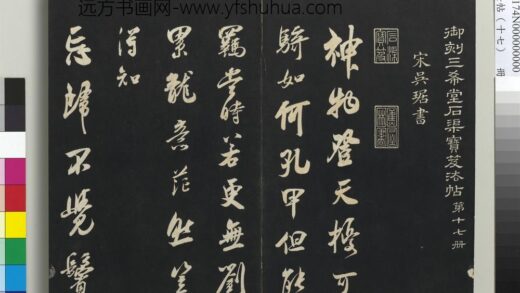 远方书画网-www.yfshuhua.com
174N000000000
帖（十七）
御刻三希堂石渠寶笈法帖 第十七冊
宋吳琚書
神物登天擾可
騎如何孔甲但能
羈當時若更無劉
累龍意茫然豈
得知
忘歸不覺鬢